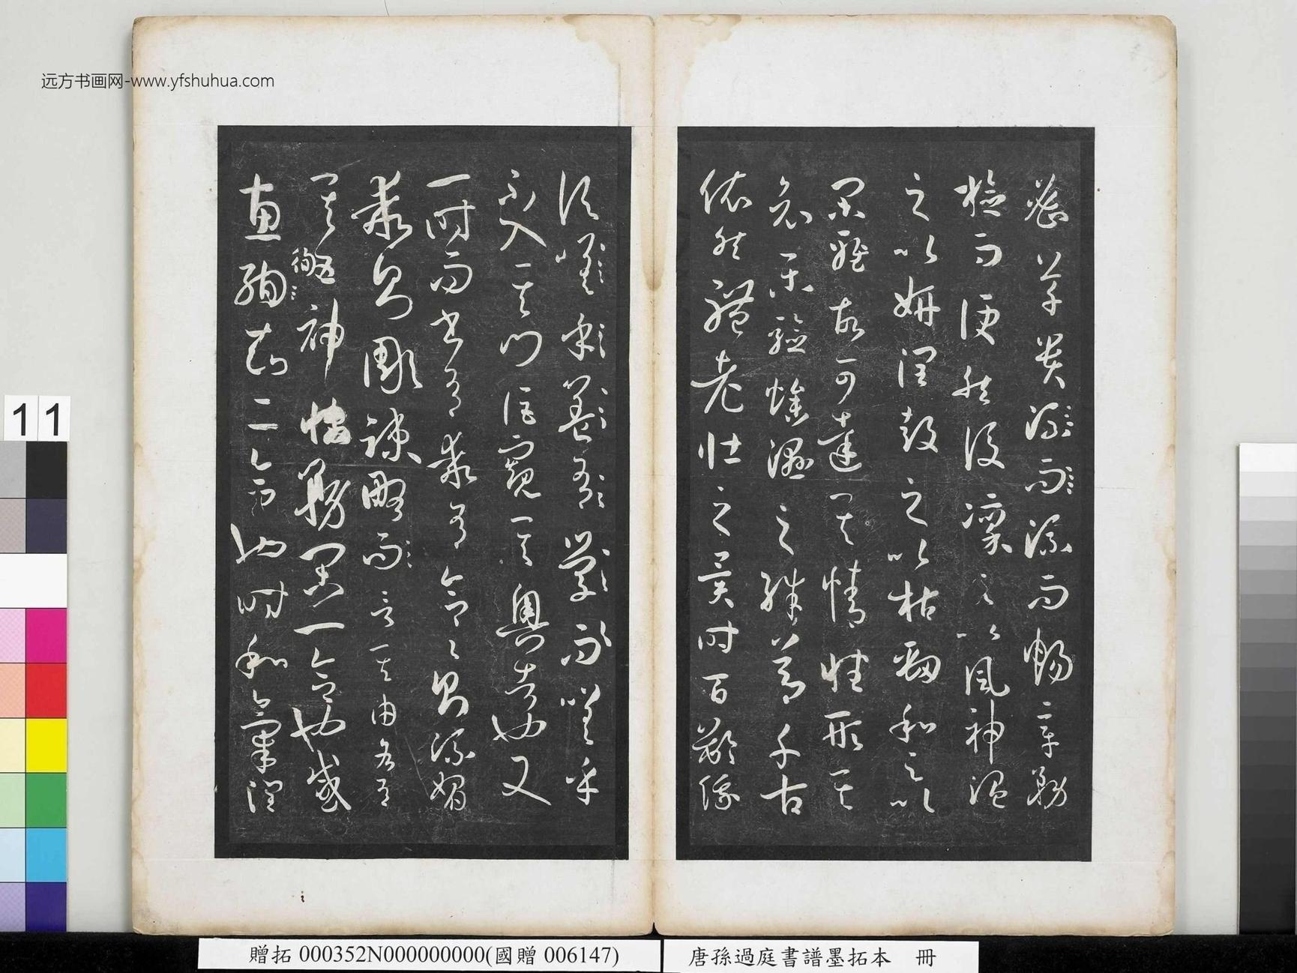 密草貴流而流而暢章務
檢而便然後凜之以風神溫
之以妍潤鼓之以枯勁和之以
閑雅故可達其情性形其
哀樂驗燥濕之殊節千古
依然體老壯之異時百齡俄
頃嗟乎
不入其門詎窺其奧者也又
一時而書有乖有合合則流媚
乖則彫疎略而言其由各有
其五神怡務閑一合也感
惠徇知二合也時和氣潤
远方书画网-www.yfshuhua.com
11
贈拓 000352N000000000(國贈 006147)
唐孫過庭書譜墨拓本 冊